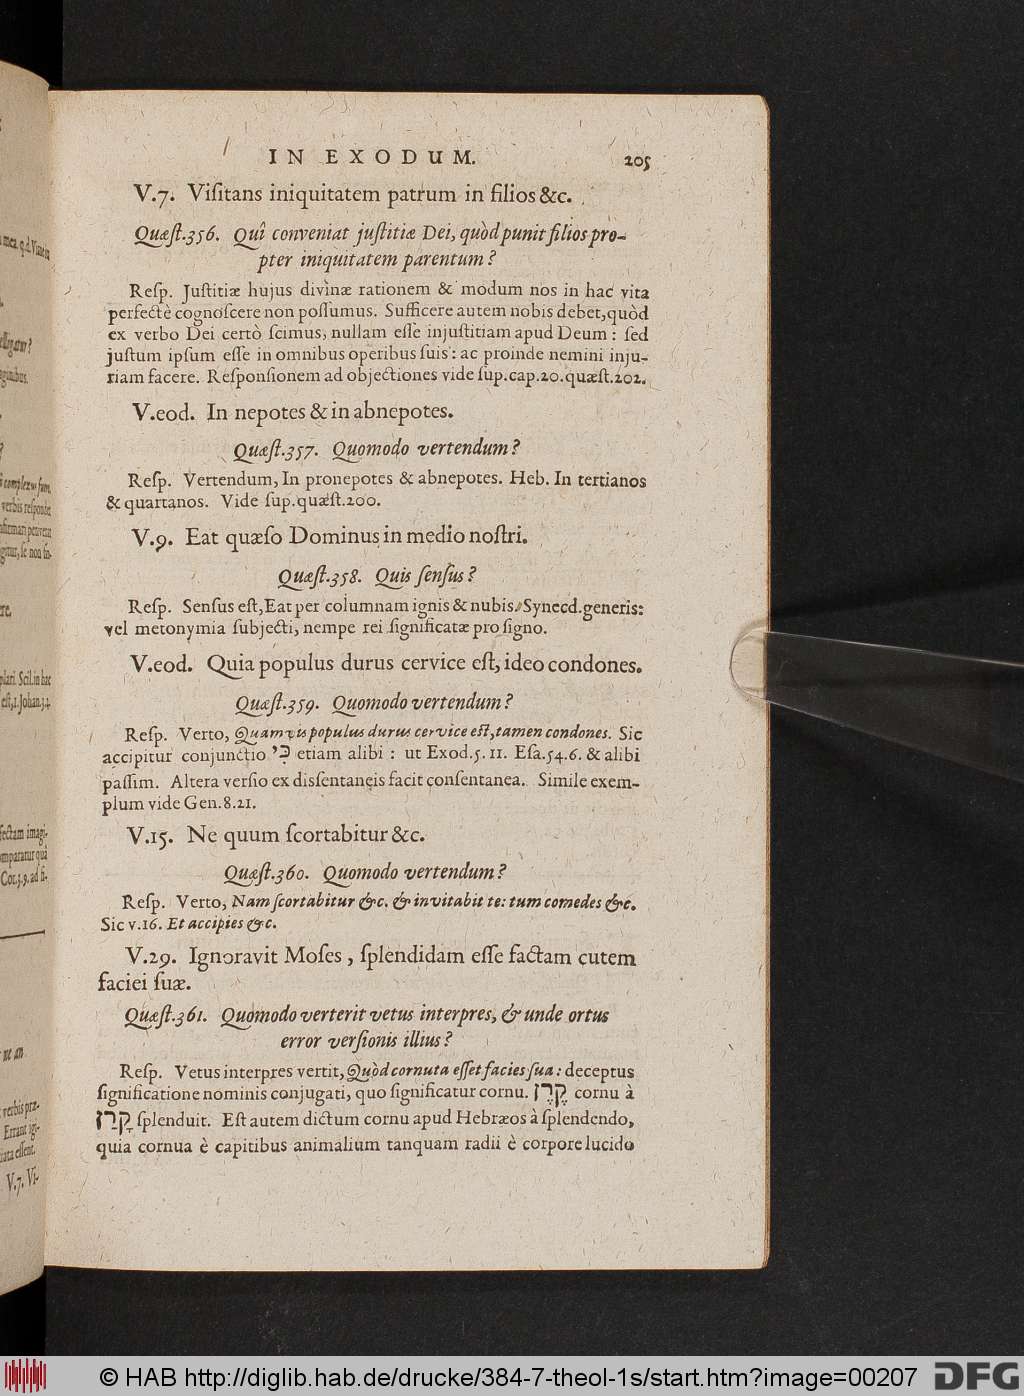 IN EXODUM. 205
V.7. Viſitans iniquitatem patrum in filios &c.
Quæſt.356. Quî conveniat juſtitiæ Dei, quòd punit filios pro-
pter iniquitatem parentum?
Reſp. Juſtitiæ hujus divinæ rationem & modum nos in hac vita
perfectè cognoſcere non poſſumus. Sufficere autem nobis debet, quòd
ex verbo Dei certò ſcimus, nullam eſſe injuſtitiam apud Deum: ſed
juſtum ipſum eſſe in omnibus operibus ſuis: ac proinde nemini inju-
riam facere. Reſponſionem ad objectiones vide ſup.cap.20.quæſt.202.
V.eod. In nepotes & in abnepotes.
Quæſt.357. Quomodo vertendum?
Reſp. Vertendum, In pronepotes & abnepotes. Heb. In tertianos
& quartanos. Vide ſup.quæſt.200.
V.9. Eat quæſo Dominus in medio noſtri.
Quæſt.358. Quis ſenſus?
Reſp. Senſus eſt, Eat per columnam ignis & nubis. Synecd.generis:
vel metonymia ſubjecti, nempe rei ſignificatæ pro ſigno.
V.eod. Quia populus durus cervice eſt, ideo condones.
Quæſt.359. Quomodo vertendum?
Reſp. Verto, Quamvis populus durus cervice eſt, tamen condones. Sic
accipitur conjunctio כִּי etiam alibi: ut Exod.5.11. Eſa.54.6. & alibi
paſſim. Altera verſio ex diſſentaneis facit conſentanea. Simile exem-
plum vide Gen.8.21.
V.15. Ne quum ſcortabitur &c.
Quæſt.360. Quomodo vertendum?
Reſp. Verto, Nam ſcortabitur &c. & invitabit te: tum comedes &c.
Sic v.16. Et accipies &c.
V.29. Ignoravit Moſes, ſplendidam eſſe factam cutem
faciei ſuæ.
Quæſt.361. Quomodo verterit vetus interpres, & unde ortus
error verſionis illius?
Reſp. Vetus interpres vertit, Quòd cornuta eſſet facies ſua: deceptus
ſignificatione nominis conjugati, quo ſignificatur cornu. קֶרֶן cornu à
קָרַן ſplenduit. Eſt autem dictum cornu apud Hebræos à ſplendendo,
quia cornua è capitibus animalium tanquam radii è corpore lucido
© HAB http://diglib.hab.de/drucke/384-7-theol-1s/start.htm?image=00207 DFG